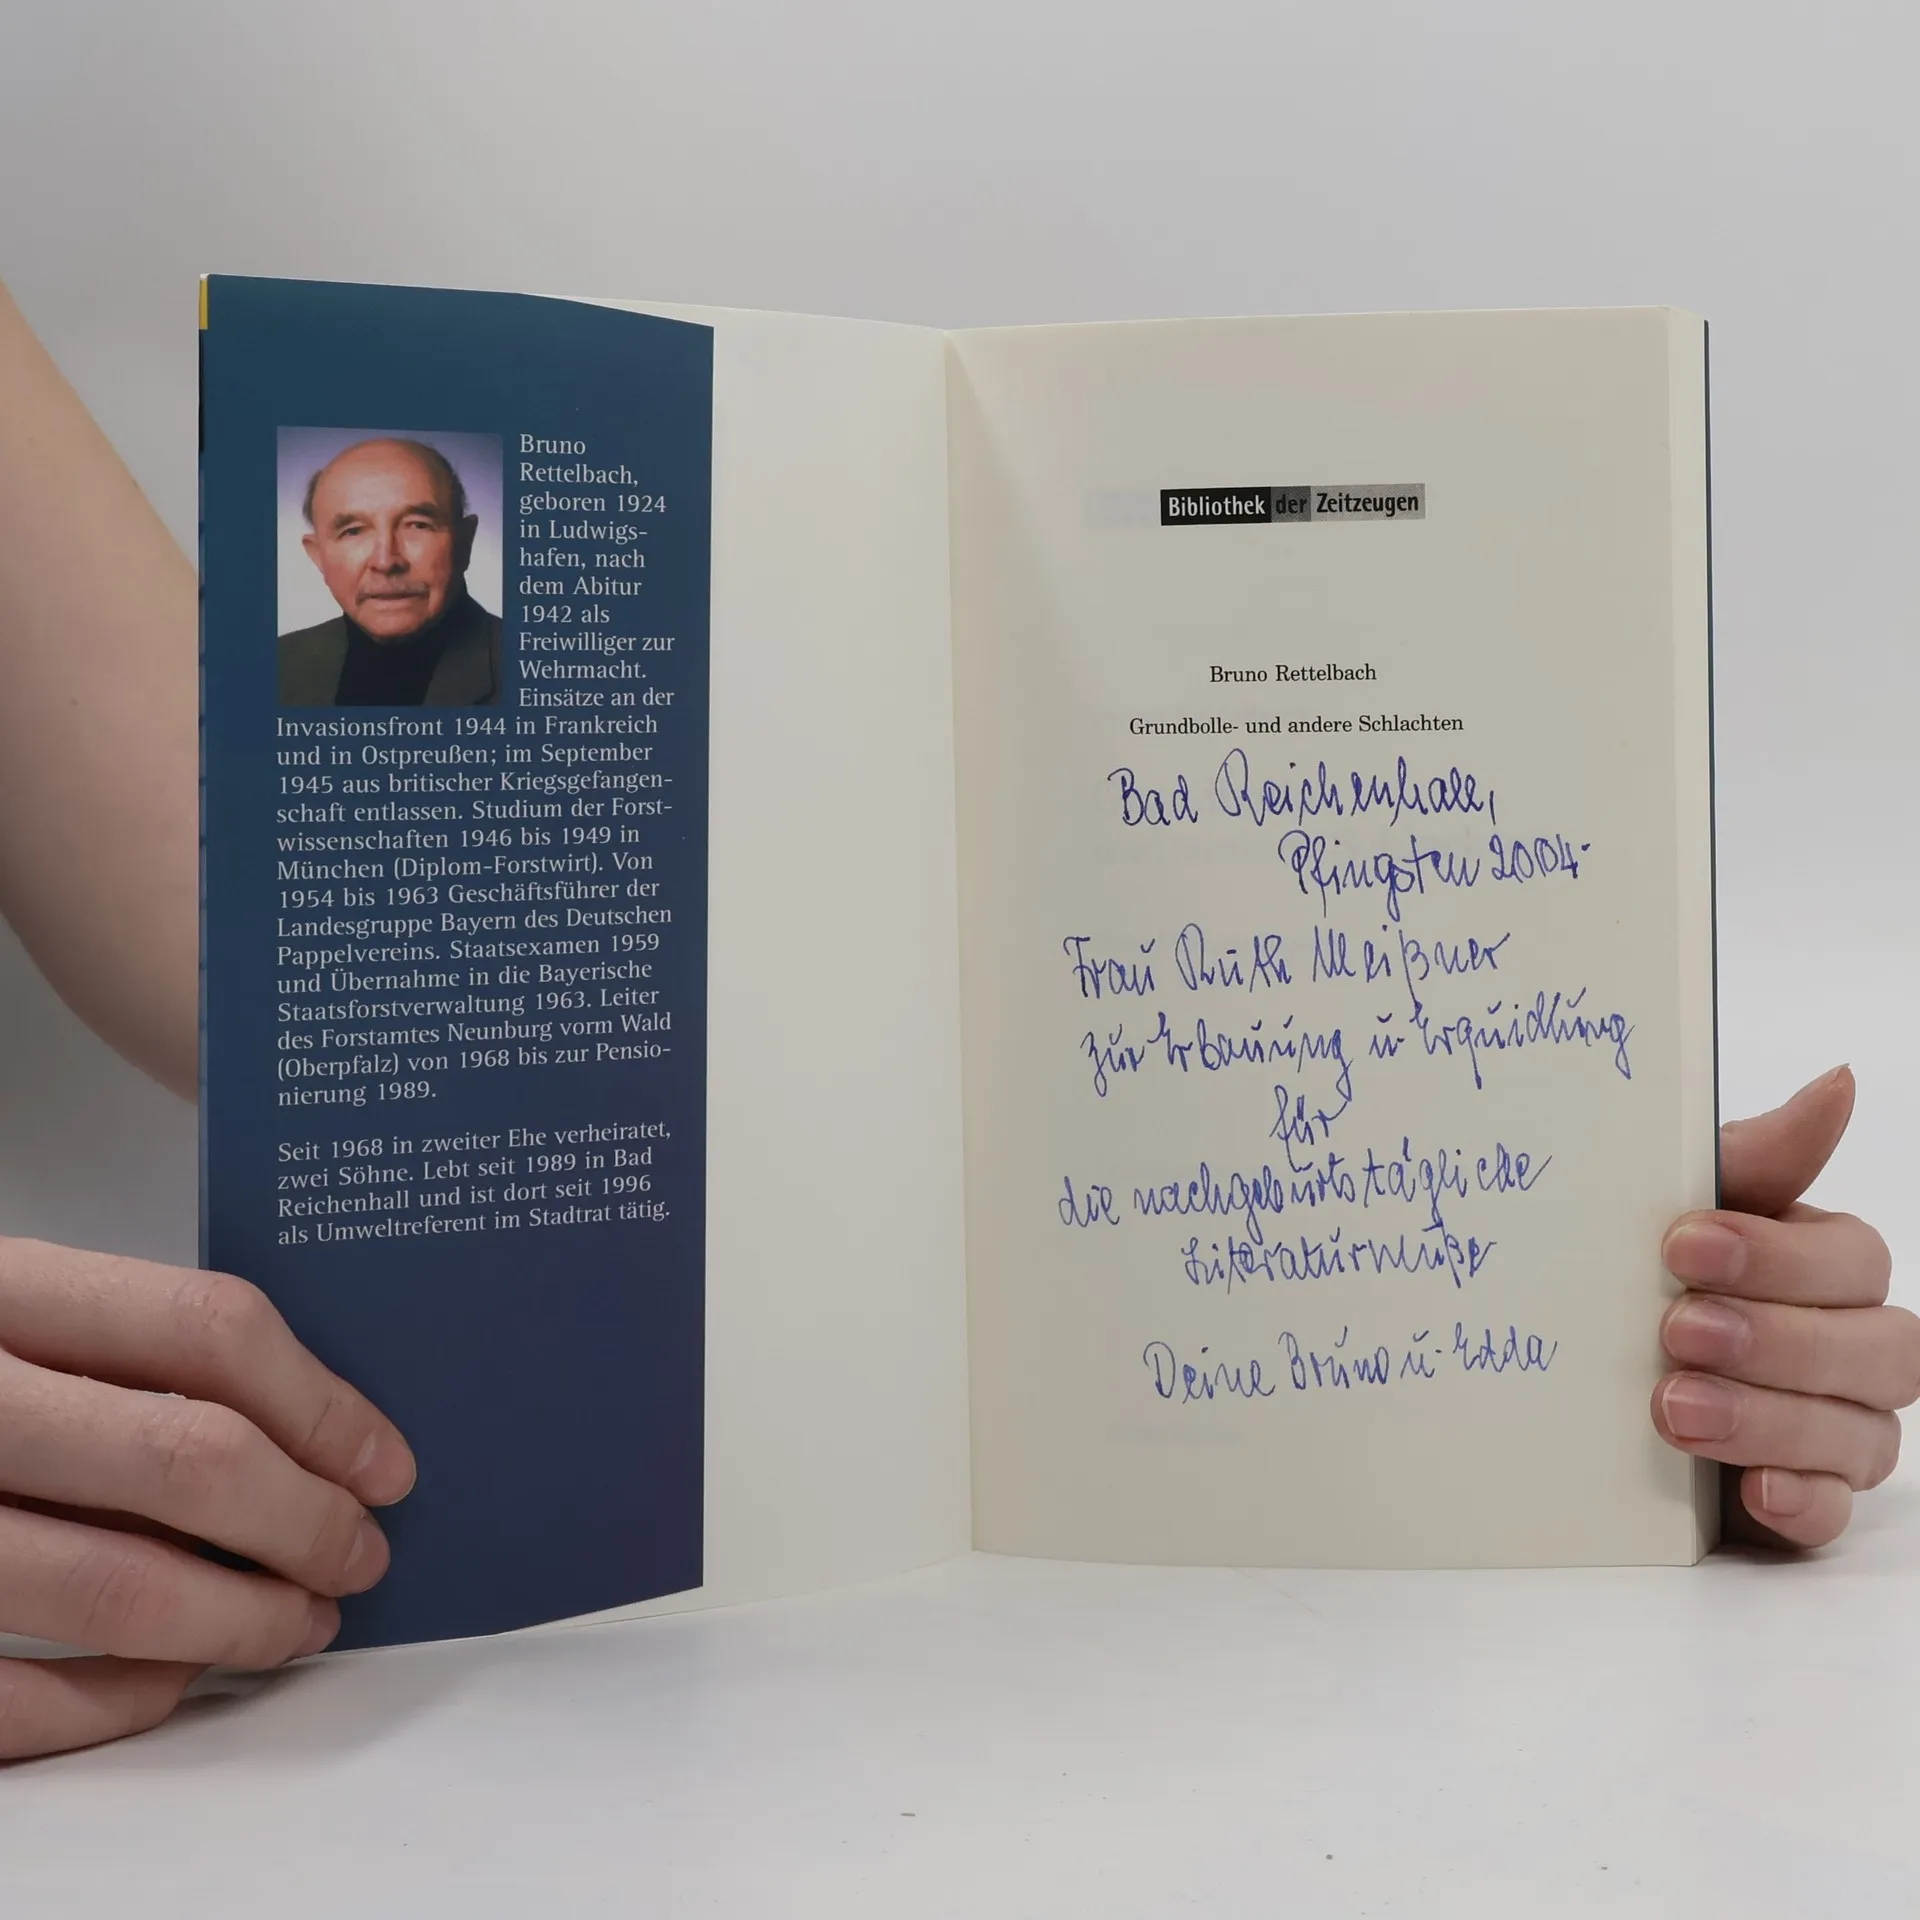 Bruno
Rettelbach,
geboren 1924
in Ludwigs-
hafen, nach
dem Abitur
1942 als
Freiwilliger zur
Wehrmacht.
Einsätze an der
Invasionsfront 1944 in Frankreich
und in Ostpreußen; im September
1945 aus britischer Kriegsgefangen-
schaft entlassen. Studium der Forst-
wissenschaften 1946 bis 1949 in
München (Diplom-Forstwirt). Von
1954 bis 1963 Geschäftsführer der
Landesgruppe Bayern des Deutschen
Pappelvereins. Staatsexamen 1959
und Übernahme in die Bayerische
Staatsforstverwaltung 1963. Leiter
des Forstamtes Neunburg vorm Wald
(Oberpfalz) von 1968 bis zur Pensio-
nierung 1989.
Seit 1968 in zweiter Ehe verheiratet,
zwei Söhne. Lebt seit 1989 in Bad
Reichenhall und ist dort seit 1996
als Umweltreferent im Stadtrat tätig.
Bibliothek der Zeitzeugen
Bruno Rettelbach
Grundbolle- und andere Schlachten
Bad Reichenhall,
Pfingsten 2004-
Frau Ruth Meißner
zur Erbauung u Erquickung
für
die nachgeburtstägliche
Literaturmuße
Deine Bruno u. Edda